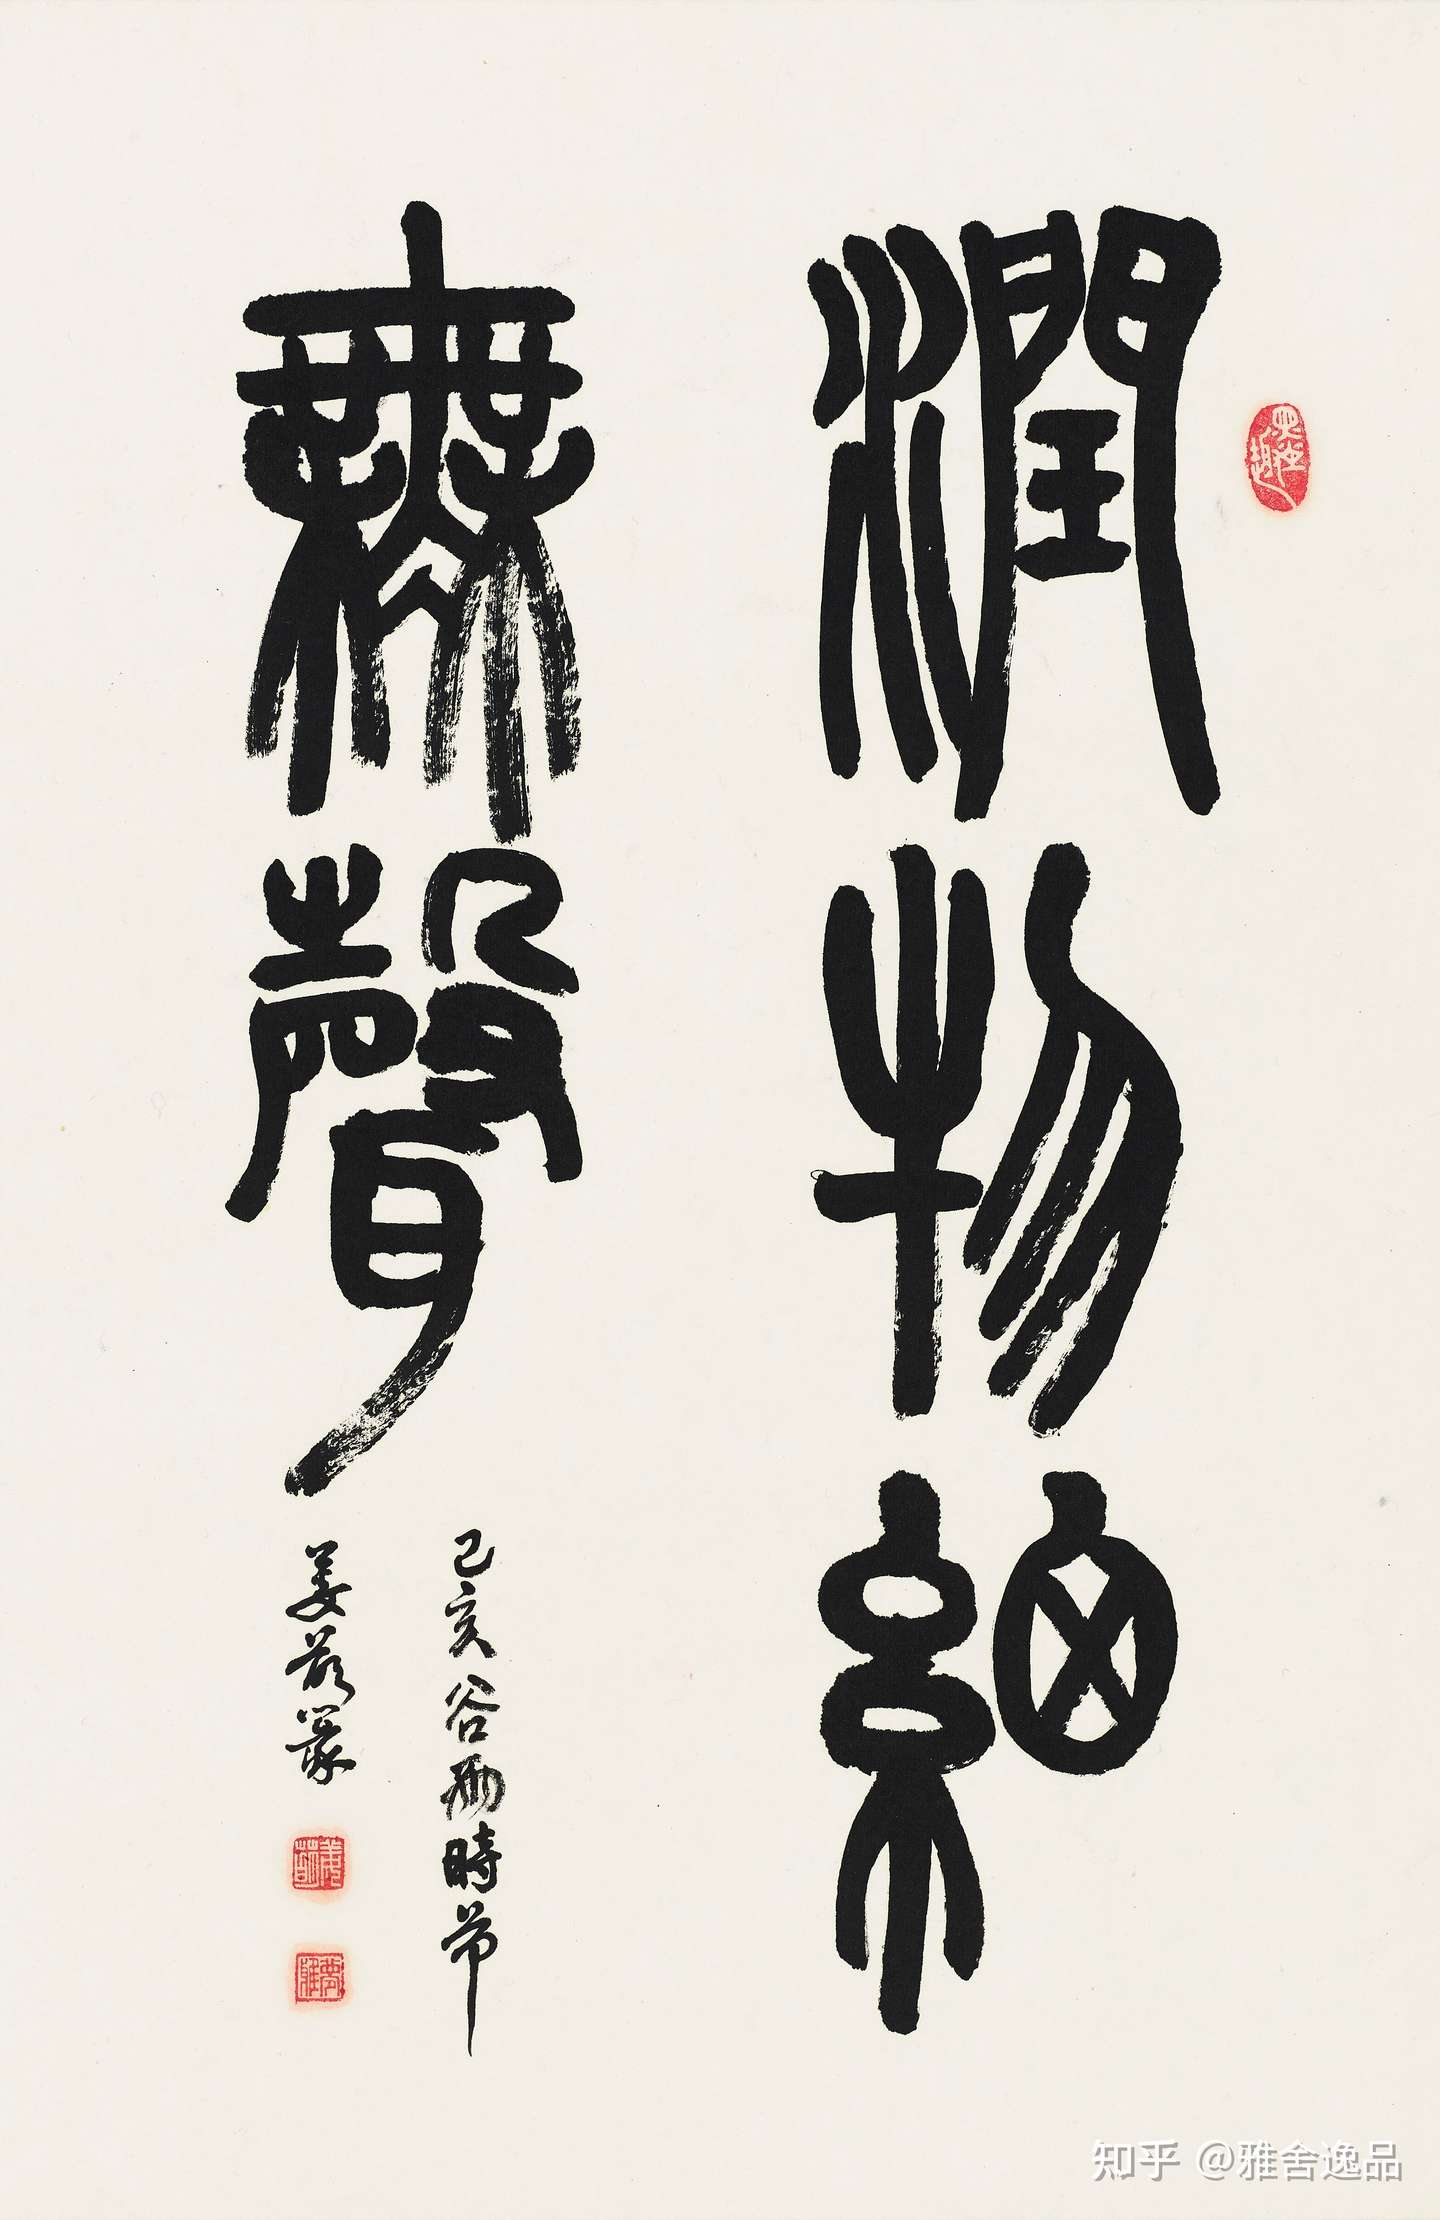 潤物細
無聲
己亥谷雨時節
姜敬篆
知乎 @雅舍逸品